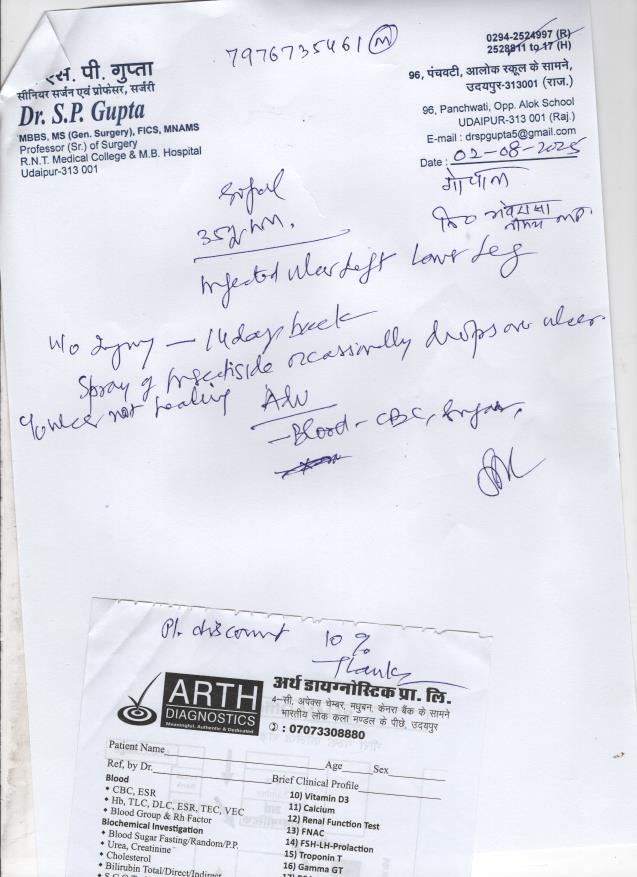 7976735461 (M)
एस. पी. गुप्ता
सीनियर सर्जन एवं प्रोफेसर, सर्जरी
Dr. S.P. Gupta
MBBS, MS (Gen. Surgery), FICS, MNAMS
Professor (Sr.) of Surgery
R.N.T. Medical College & M.B. Hospital
Udaipur-313 001
0294-2524997 (R)
2528811 to 17 (H)
96, पंचवटी, आलोक स्कूल के सामने,
उदयपुर-313001 (राज.)
96, Panchwati, Opp. Alok School
UDAIPUR-313 001 (Raj.)
E-mail : drspgupta5@gmail.com
Date : 02-08-2025
गोपाल
Gopal
35yr/m.
Infected ulcer Left Lower Leg
H/o Injury - 14 days back
Spray of Insectiside occassionally drops over ulcer.
C/o ulcer not healing
Adv
- Blood - CBC, Sugar,
Pl. discount 10 %
Thanks
ARTH
DIAGNOSTICS
Meaningful, Authentic & Dedicated
अर्थ डायग्नोस्टिक प्रा. लि.
4-सी, अपेक्स चेम्बर, मधुबन, केनरा बैंक के सामने
भारतीय लोक कला मण्डल के पीछे, उदयपुर
: 07073308880
Patient Name
Age Sex
Ref, by Dr.
Brief Clinical Profile
Blood
• CBC, ESR
• Hb, TLC, DLC, ESR, TEC, VEC
• Blood Group & Rh Factor
Biochemical Investigation
• Blood Sugar Fasting/Random/P.P.
• Urea, Creatinine
• Cholesterol
• Bilirubin Total/Direct/Indirect
10) Vitamin D3
11) Calcium
12) Renal Function Test
13) FNAC
14) FSH-LH-Prolaction
15) Troponin T
16) Gamma GT